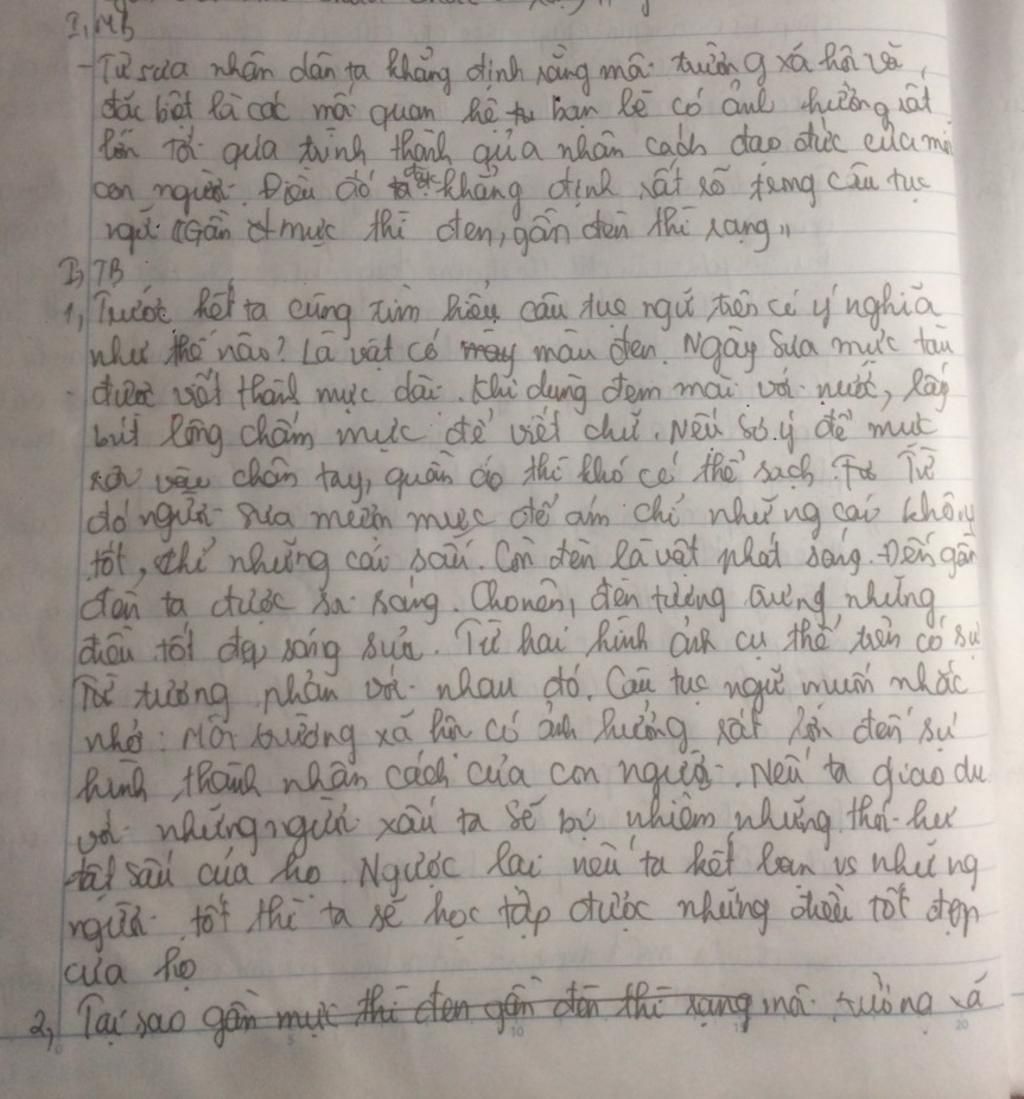 I, MB
- Từ sưa nhân dân ta khẳng định rằng môi trường xã hội và
đặc biệt là các mối quan hệ bạn bè có ảnh hưởng rất
lớn tới qúa trình thành qủa nhân cách đạo đức của mỗi
con người. Điều đó được khẳng định rất rõ trong câu tục
ngữ "Gần mực thì đen, gần đèn thì rạng"
I, TB
1, Trước hết ta cùng tìm hiểu câu tục ngữ trên có ý nghĩa
như thế nào? Là vật có màu đen. Ngày sưa mực tàu
được viết thành mực dài. Khi dùng đem mài với nước, lấy
bút lông chấm mực để viết chữ. Nếu sơ ý để mực
rơi vào chân tay, quần áo thì khó có thể sạch. Từ
đó người sưa mượn mực để ám chỉ những cái không
tốt, chỉ những cái sấu. Còn đèn là vật phát sáng. Đến gần
đèn ta được sáng. Cho nên, đèn tượng trưng những
điều tốt đẹp sáng sủa. Từ hai hình ảnh cụ thể trên có sự
Từ tương phản với nhau đó. Câu tục ngữ muốn nhắc
nhở: Môi trường xã hội có ảnh hưởng rất lớn đến sự
hình thành nhân cách của con người. Nếu ta giao du
với những người xấu ta sẽ bị nhiễm những thói hư
tật sấu của họ. Ngược lại nếu ta kết bạn vs những
người tốt thì ta sẽ học tập được những điều tốt đẹp
của họ
2, Tại sao gần mực thì đen gần đèn thì rạng môi trường xã